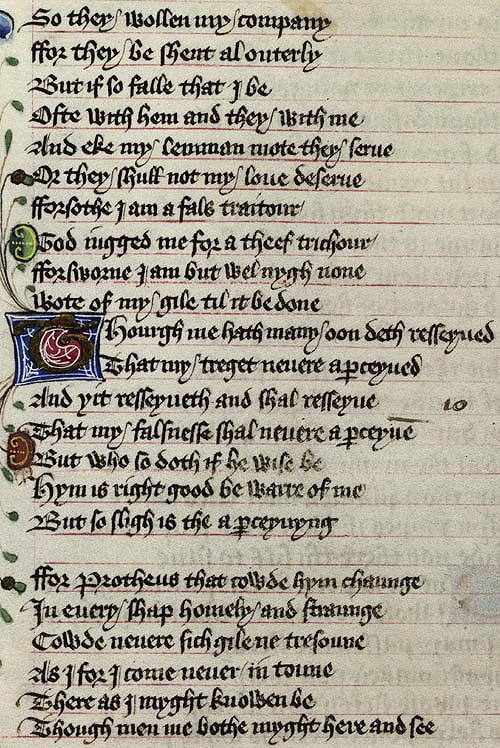 So they wollen my company
ffor they be shent al outerly
But if so falle that I be
Ofte with hem and they with me
And eke my lemman mote they serue
Or they shull not my loue deserue
fforsothe I am a fals traitour
God iugged me for a theef trichour
fforsworne I am but wel nygh none
Wote of my gile til it be done
Thourgh me hath many oon deth resseyued
That my treget neuere aꝑceyued
And yit resseyueth and shal resseyue
10
That my falsnesse shal neuere aꝑceyue
But who so doth if he wise be
Hym is right good be warre of me
But so sligh is the aꝑceyuyng
ffor Protheus that cowde hym chaunge
In euery shap homely and straunge
Cowde neuere sich gile ne tresoune
As I for I come neuer in toune
There as I myght knowen be
Though men me bothe myght here and see